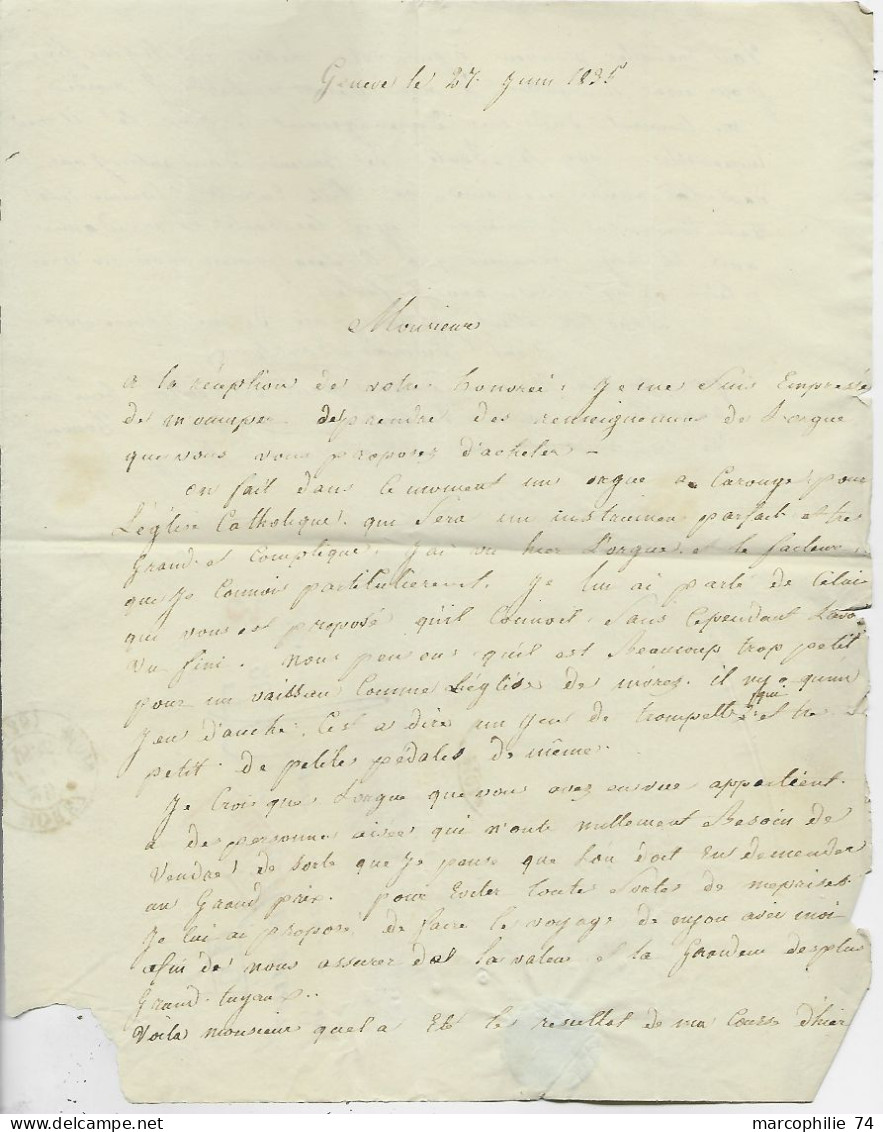 Geneve le 27. Juin 1835
Monsieur
a la réception de votre honorée, Je me Suis Empressé
de moccuper deprendre des renseignemens de L'orgue
que vous vous proposez d'acheler –
on fait dans le moment un orgue a Carouge, pour
L'église Catholique, qui Sera un instrument parfait et tres
Grand et Complique, J'ai vu hier L'orgue, et le facteur
que Je Connois particulierement. Je lui ai parlé de Celui
qui vous est proposé qu'il Connoit Sans Cependant Lavo
vu fini. nous pensons qu'il est Beaucoup trop petit
pour un vaisseau Comme L'église de mores. il ny a qu'un
Jeu d'anche, C'est a dire un Jeu de trompette qui est tres
petit de petites pédales de même.
Je Crois que L'orgue que vous avez en vue appartient
a des personnes aisées qui n'ont nullement Besoin de
Vendre, de Sorte que Je pense que L'on doit En demender
un Grand prix. pour Eviter toute Sortes de meprises
Je lui ai proposé de faire le voyage de avec moi
afin de nous assurer de la valeur et la Grandeur des plus
Grand tuyaux.
Voila monsieur quel a Eté le resultat de ma Course d'hier
marcophilie 74